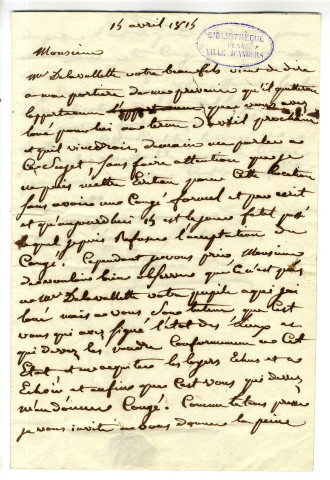 15 avril 1815
BIBLIOTHÈQUE
DE LA
VILLE D'ANGERS
Monsieur
Mr Delavallette votre beau fils vient de dire
a ma portiere de me prevenir qu'il quitterai
l'appartement que vous avez
loué pour lui au terme d'avril prochain
et qu'il viendroit demain me parler a
ce Sujet, sans faire attention que je
ne puis mettre Ecriteau pour cette location
sans avoir un Congé formel et par ecrit
et qu'aujourd'hui 15 est le jour fatal passé
lequel je puis Refuser l'acceptation du
Congé. Cependant je vous prie, Monsieur
de vouloir bien observer que Ce n'est pas
a Mr Delavallette votre pupil a qui j'ai
loué mais a vous Son tuteur, que C'est
vous qui avez signé l'état des Lieux et
qui devez les rendre Conformement au dit
Etat et me acquitter les loyers Echus et a
Echoir et enfin que C'est vous qui devez
m'en donner Congé. Comme le tems presse
je vous invite a vous donner la peine